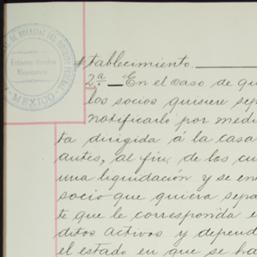 Estados Unidos
Mexicanos
MEXICO
stablecimiento.
2ª. En el caso de qu
los socios quisiere sep
notificarlo por medi
ta dirigida á la casa
antes, al fin de los cu
una liquidación y se en
socio que quiera sepa
te que le corresponda e
ditos activos y depend
el estado en que se ha